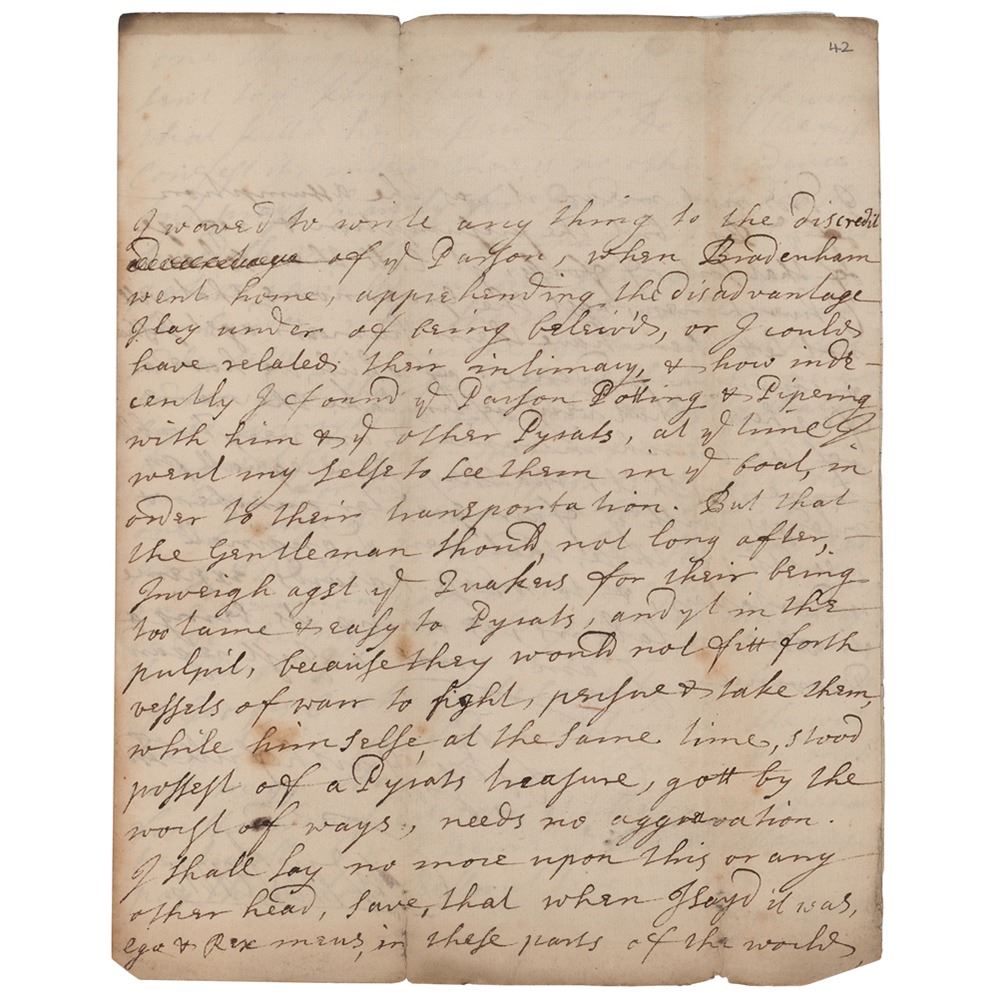 42
I waved to write any thing to the discredit
of yᵉ Parson, when Bradenham
went home, apprehending the disadvantage
I lay under of being beleiv'd, or I could
have related their intimacy, & how inde-
cently I found yᵉ Parson Potting & Pipeing
with him & yᵉ other Pyrats, at yᵉ time I
went my selfe to see them in yᵉ boat, in
order to their transportation. But that
the Gentleman should, not long after, -
Inveigh agst yᵉ Quakers for their being
too tame & easy to Pyrats, and yt in the
pulpit, because they would not fitt forth
vessels of warr to fight, persue & take them,
while himselfe, at the same time, stood
possest of a Pyrats treasure, gott by the
worst of ways, needs no aggravation.
I shall say no more upon this or any
other head, save, that when I sayd it was,
ego & Rex meus, in these parts of the world,